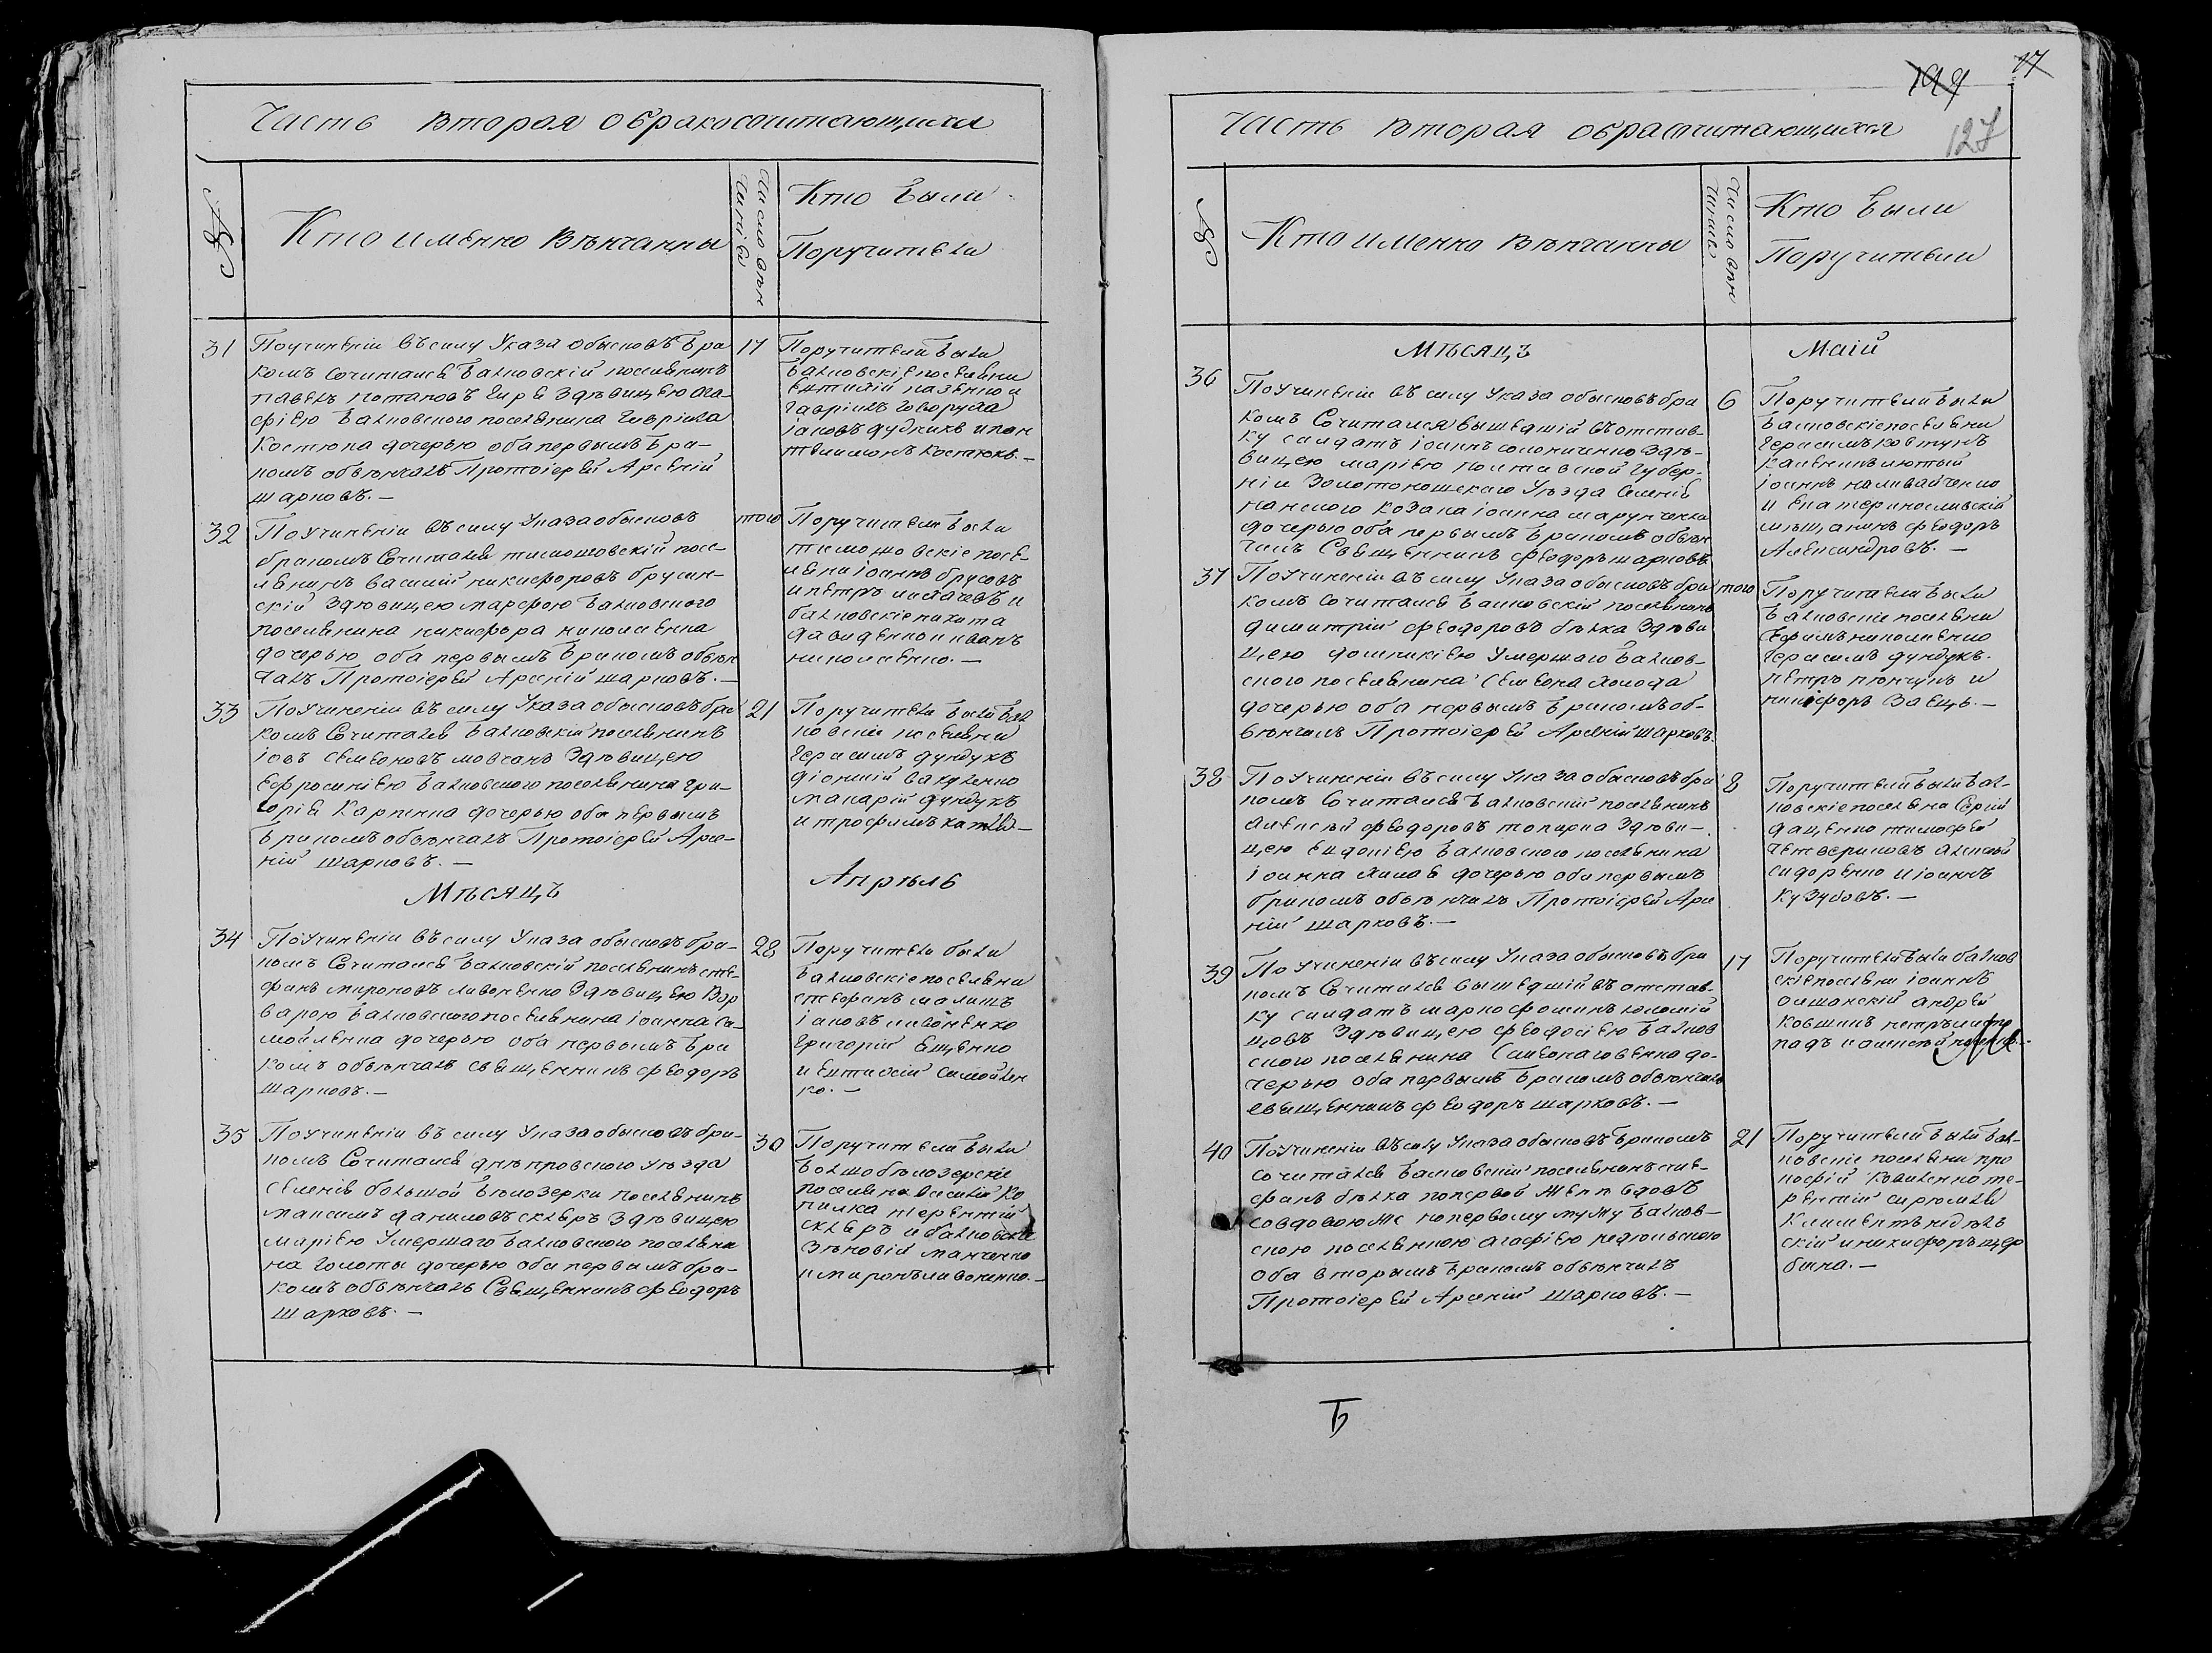 Часть вторая о бракосочитающихся
№
Кто именно вѣнчанны
Число вѣн
чаніѧ
Кто были
Поручители
31
По учиненіи въ силу Указа обысковъ бра
комъ сочитался балковскій поселянинъ
павелъ потаповъ
съ дѣвицею ага-
фіею балковского поселянина Гавріила
Костюка дочерью оба первымъ бра-
комъ обвѣнчалъ Протоіерей Арсеній
шарковъ. —
17
Поручители были
балковскіе поселяни
Евтихій
гавріилъ говоруха
іаковъ дудникъ и пан
телимонъ костюкъ. —
32
По учиненіи въ силу Указа обысковъ
бракомъ сочитался тимошовскій посе-
лянинъ василій никифоровъ брусин-
скій з дѣвицею марфою балковского
поселянина никифора николаенка
дочерью оба первымъ бракомъ обвѣн
чалъ Протоіерей Арсеній шарковъ. —
того
Поручители были
тимошовскіе посе-
ляни іоаннъ брусовъ
и петръ
и
балковскіе никита
давиденко и иванъ
николаенко. —
33
По учиненіи въ силу Указа обысковъ бра
комъ сочитался балковскій поселянинъ
іовъ семеновъ мовчанъ з дѣвицею
Ефросиніею балковского поселянина гри-
горія Карпенка дочерью оба первымъ
бракомъ обвѣнчалъ Протоіерей Арсе-
ній шарковъ. —
21
Поручители были бал
ковскіе поселяни
герасимъ дундукъ
діонисій вакуленко
макарій дундукъ
и трофимъ
Мѣсяцъ Апрѣль
34
По учиненіи въ силу Указа обысковъ бра-
комъ сочитался балковскій поселянинъ сте-
фанъ мироновъ ливоненко з дѣвицею Вар
варою балковского поселянина іоанна са-
мойленка дочерью оба первымъ бра
комъ обвѣнчалъ священникъ феодоръ
шарковъ. —
28
Поручители были
балковскіе поселяни
стефанъ малишъ
іаковъ ливоненко
григорій Ещенко
и Евтихій самойлен
ко. —
35
По учиненіи въ силу Указа обысковъ бра-
комъ сочитался днѣпровского уѣзда
селенія большой бѣлозерки поселянинъ
максимъ даниловъ скляръ з дѣвицею
маріею умершаго балковского поселяни
на голоты дочерью оба первымъ бра-
комъ обвѣнчалъ Священникъ феодоръ
шарковъ. —
30
Поручители были
большобѣлозерскіе
поселяни василій ко
пилка терентій
скляръ и балковскіе
зѣновій
и миронъ ливоненко. —
199
17
127
Часть вторая о брасочитающихся
№
Кто именно вѣнчанны
Число вѣн
чаніѧ
Кто были
Поручители
Мѣсяцъ Маій
36
По учиненіи въ силу Указа обысковъ бра
комъ Сочитался вышедшій въ отстав-
ку салдатъ іоаннъ солониченко з дѣ-
вицею маріею полтавской губер-
ніи Золотоношского уѣзда селенія
козака іоанна марунченка
дочерью оба первымъ бракомъ обвѣн
чалъ Священникъ феодоръ шарковъ
6
Поручители были
балковскіе поселяни
герасимъ ковтунъ
калениkъ лютый
іоаннъ наливайченко
и екатеринославскій
мѣщанинъ феодоръ
Александровъ. —
37
По учиненіи въ силу Указа обысковъ бра
комъ сочитался балковскій поселянинъ
димитрій феодоровъ бѣлка з дѣви
цею домникіею умершаго балков-
ского поселянина семеона холода
дочерью оба первымъ бракомъ об-
вѣнчалъ Протоіерей Арсеній шарковъ.
того
Поручители были
балковскіе поселяни
Ефимъ николаенко
герасимъ дундукъ.
петръ
и
никифоръ Заецъ. —
38
По учиненіи въ силу Указа обысковъ бра
комъ сочитался балковскій поселянинъ
алексѣй феодоровъ токарка з дѣви-
цею Евдокіею балковского поселянина
іоанна
дочерью оба первымъ
бракомъ обвѣнчалъ Протоіерей Арсе
ній шарковъ. —
8
Поручители были бал-
ковскіе поселяни Сергій
даценко тимофей
четвериковъ алексѣй
сидоренко и іоаннъ
кузубовъ. —
39
По учиненіи въ силу Указа обысковъ бра
комъ Сочитался вышедшій въ отстав-
ку салдатъ марко фоминъ
цовъ з дѣвицею феодосіею балков
ского поселянина
до-
черью оба первымъ бракомъ обвѣнчалъ
священникъ феодоръ шарковъ. —
17
Поручители были балков
скіе поселяни іоаннъ
олшанскій андрей
ковшикъ петръ
и алексѣй
40
По учиненіи въ силу Указа обысковъ бракомъ
сочитался балковскій поселянинъ сте-
фанъ бѣлка по первой женѣ вдовъ
со вдовою же по первому мужу балков-
скою поселянкою агафіею недѣльскою
оба вторымъ бракомъ обвѣнчалъ
Протоіерей Арсеній шарковъ. —
21
Поручители были бал-
ковскіе поселяни про
кофій коваленко те-
рентій
Климентъ недѣль
скій и никифоръ щер
бина. —
Б